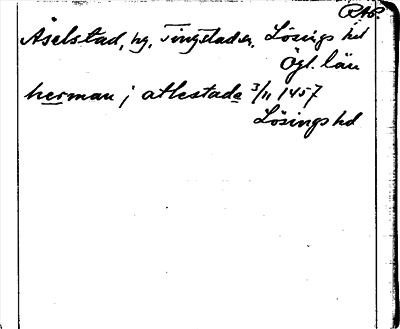 RAP.
Åselstad, by, Tingstads sn, Lösings hd
Ögl. län
herman j atlestada 3/11 1457
Lösings hd